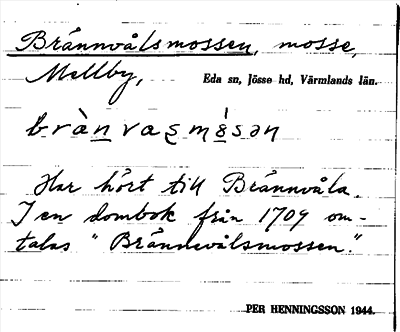 Brännvålsmossen, mosse,
Mellby, Eda sn, Jösse hd, Värmlands län.
Har hört till Brännvåla.
I en dombok från 1709 om-
talas "Brännevålsmossen".
PER HENNINGSSON 1944.